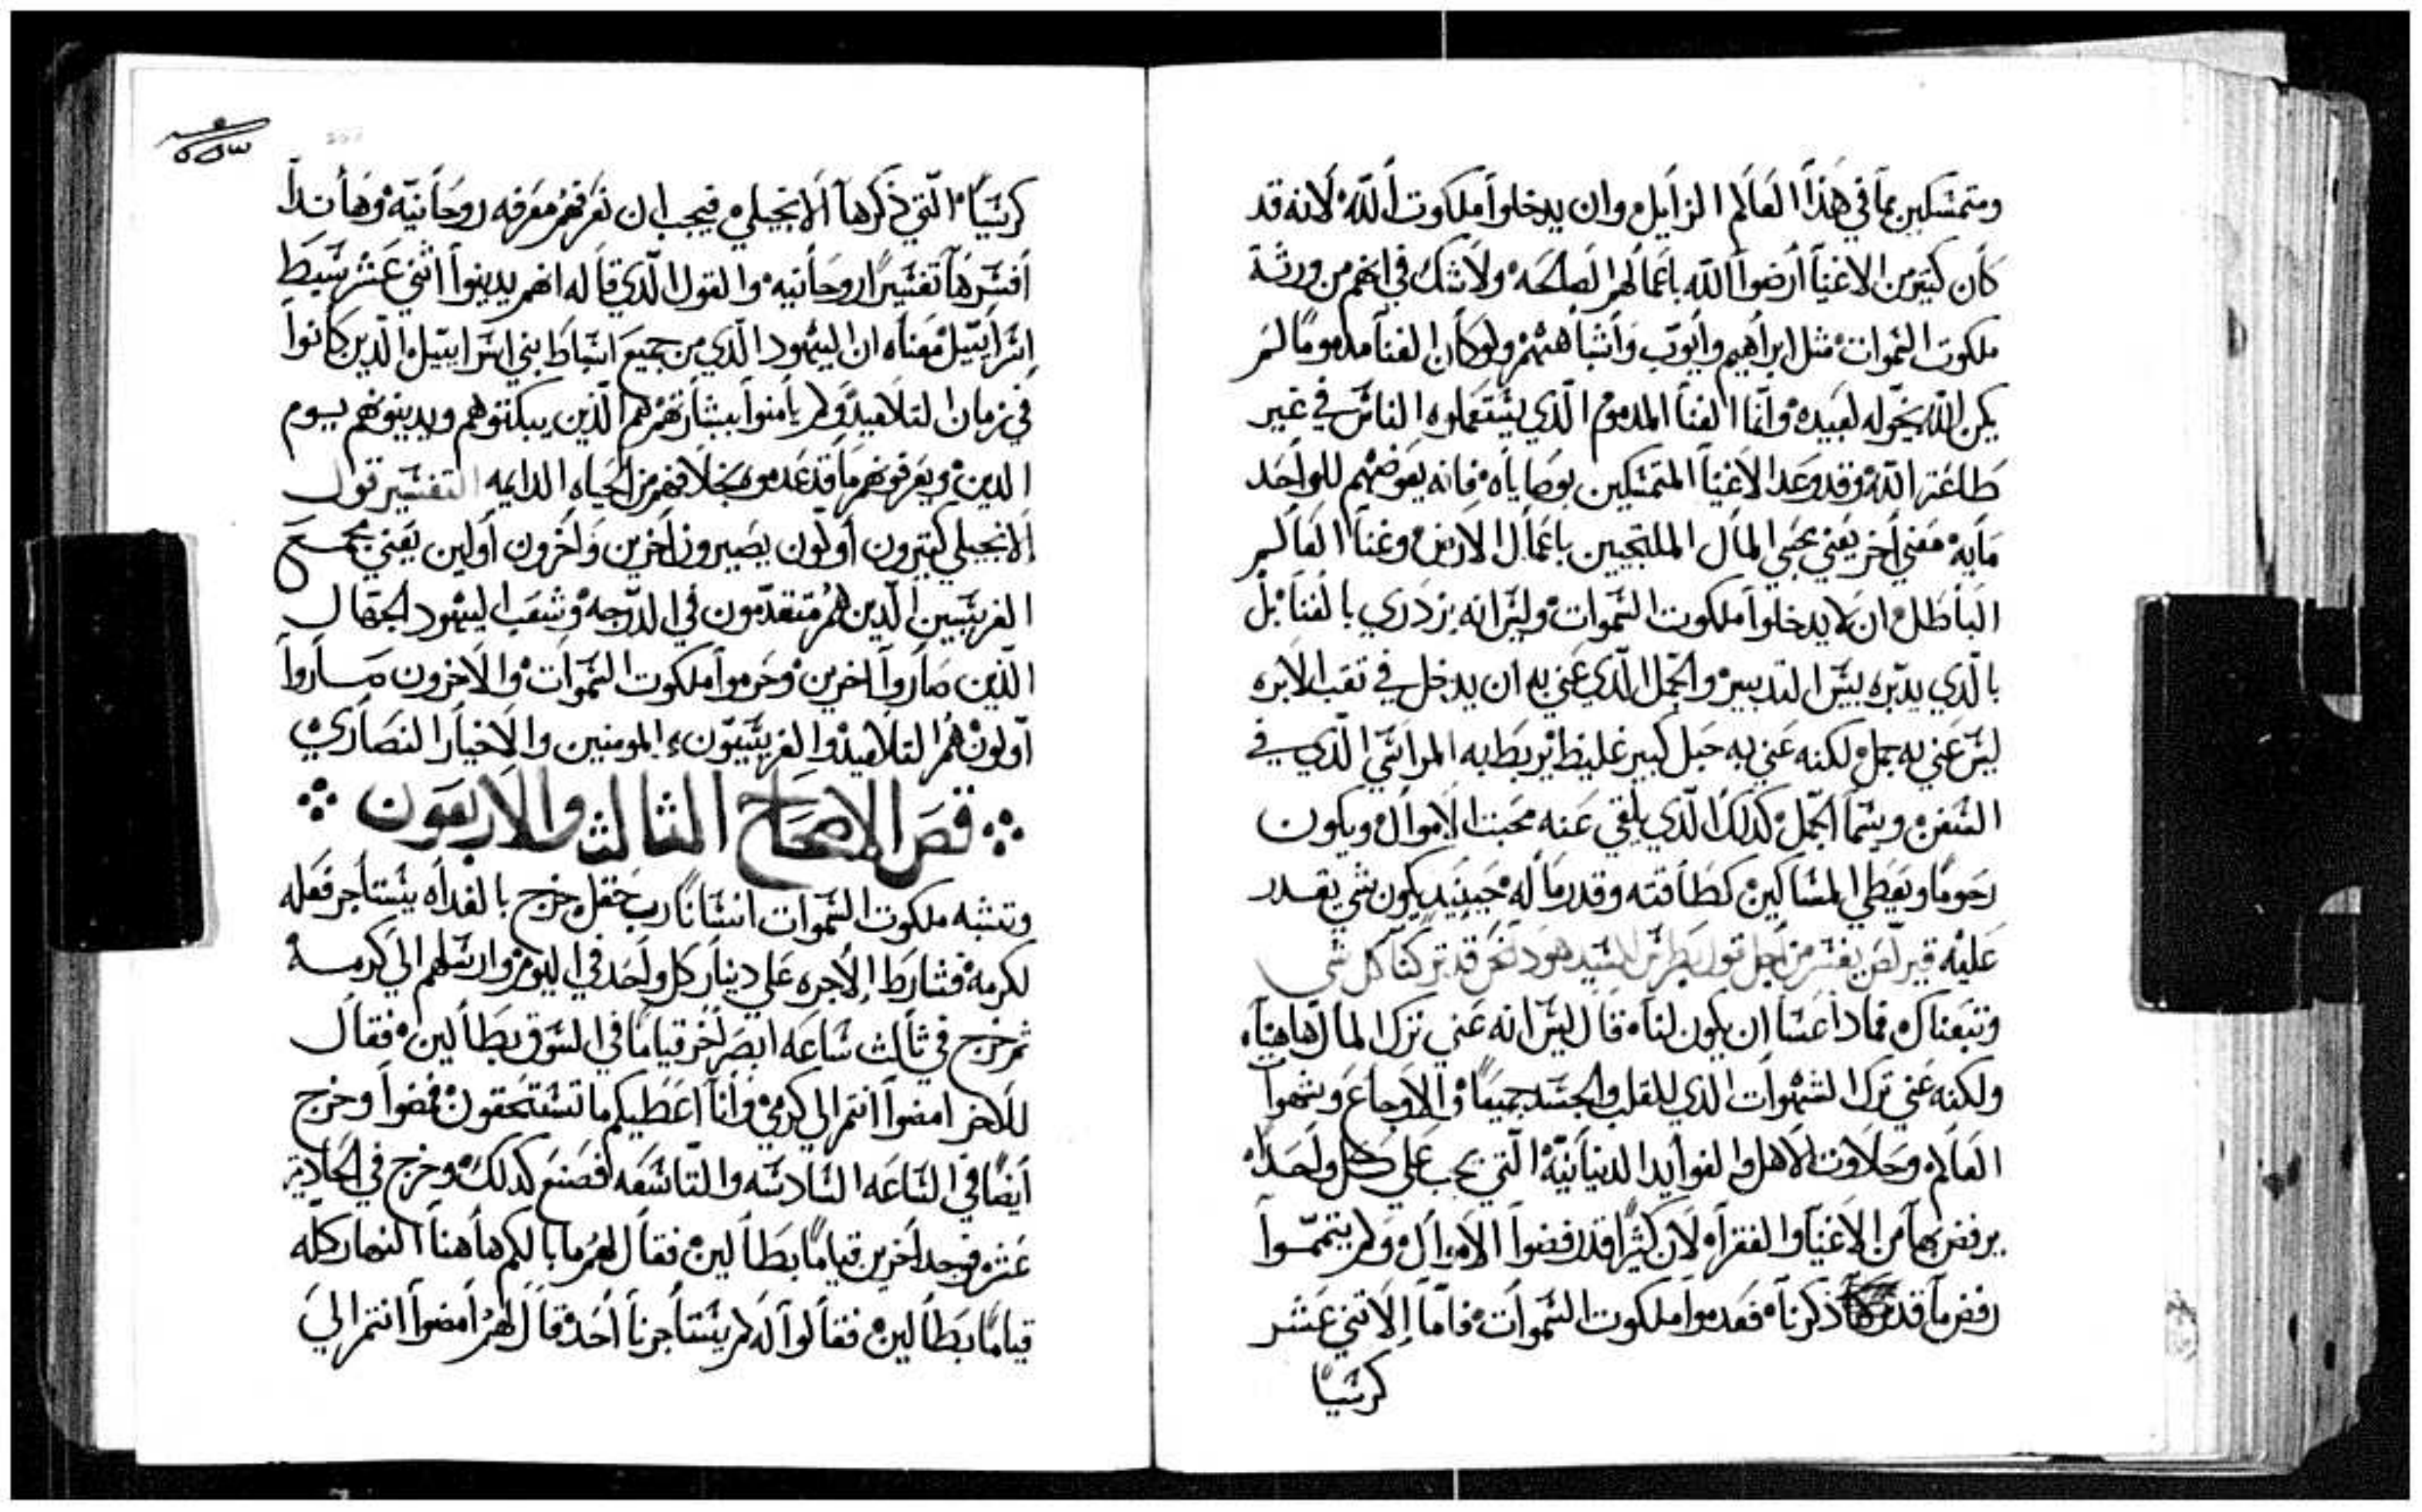 ومتمسكين بما في هذا العالم الزايل وان يدخلوا ملكوت الله لانه قد
كان كتير من الاغنيا أرضوا الله باعمالهم الصالحه ولا شك في انهم من ورثة
ملكوت السموات مثل ابراهيم وأيوب وأشباههم ولو كان الغنا مدموما لم
يكن الله يخوله لعبيده وانما الغنا المدموم الدي يستعملوه الناس في غير
طاعة الله وقد وعد الاغنيا المتمسكين بوصاياه فانه يعوضهم للواحد
مايه معني اخر يعني محبي المال الملتجيين باعمال الارض وغنا العالم
الباطل ان لا يدخلوا ملكوت السموات وليس انه يزدري بالغنا بل
بالدي يدبره بيس التدبير والجمل الدي عني به ان يدخل في تقب الابره
ليس عني به جمل لكنه عني به حبل كبير غليظ يربط به المراسي الدي في
السفن ويسما الجمل كدلك الدي يلقي عنه محبت الاموال ويكون
رحوما ويعطي المساكين كطاقته وقدر ماله حينيد يكون شي يقدر
عليه قيرلص يفسر من اجل قول بطرس للسيد هود نحن قد تركنا كل شي
وتبعناك فمادا عسا ان يكون لنا قال ليس انه عني ترك المال هاهنا
ولكنه عني ترك الشهوات الدي للقلب والجسد جميعا والاوجاع وشهوا
العالم وحلاوت الاهل والفوايد الدنيانية التي يجب علي كل واحد
يرفضها من الاغنيا والفقراه لان كثيرا قد رفضوا الاموال ولم يتمموا
رفض ما قد ذكرناه فعدموا ملكوت السموات فاما الاتني عشر
كرسيا
كرسيا التي ذكرها الانجيلي فيجب ان نعرفهم معرفه روحانيه وها ندا
افسرها تفسيرا روحانيه والقول الدي قاله انهم يدينوا اثني عشر سبط
اسراييل معناه ان اليهود الدي من جميع اسباط بني اسراييل الدين كانوا
في زمان التلاميد ولم يامنوا ببشارتهم هم الدين يبكتوهم ويدينوهم يوم
الدين ويعرفوهم ما قد عدموه بخلافهم من الحياه الدايمه التفسير قول
الانجيلي كتيرون أولون يصيرون اخرين واخرون أولين يعني مجمع
الفريسيين الدين هم متقدمون في الدرجه وشعب اليهود الجهال
الدين صاروا اخرين وحرموا ملكوت السموات والاخرون صاروا
أولون هم التلاميد والفريسيون المومنين والاخيار النصاري
قص الاصحاح الثالث والاربعون
وتشبه ملكوت السموات انسانا رب حقل خرج بالغداه يستاجر فعله
لكرمه فشارط الاجره علي دينار كل واحد في اليوم وارسلهم الي كرمه
ثم خرج في ثالث ساعه ابصر اخر قياما في السوق بطالين فقال
للاخر امضوا انتم الي كرمي وانا اعطيكم ما تستحقون فمضوا وخرج
أيضا في الساعه السادسه والتاسعه فصنع كدلك وخرج في الحادية
عشره فوجد اخرين قياما بطالين فقال لهم ما بالكم هاهنا النهار كله
قياما بطالين فقالوا له لم يستأجرنا أحد قال لهم امضوا انتم الي